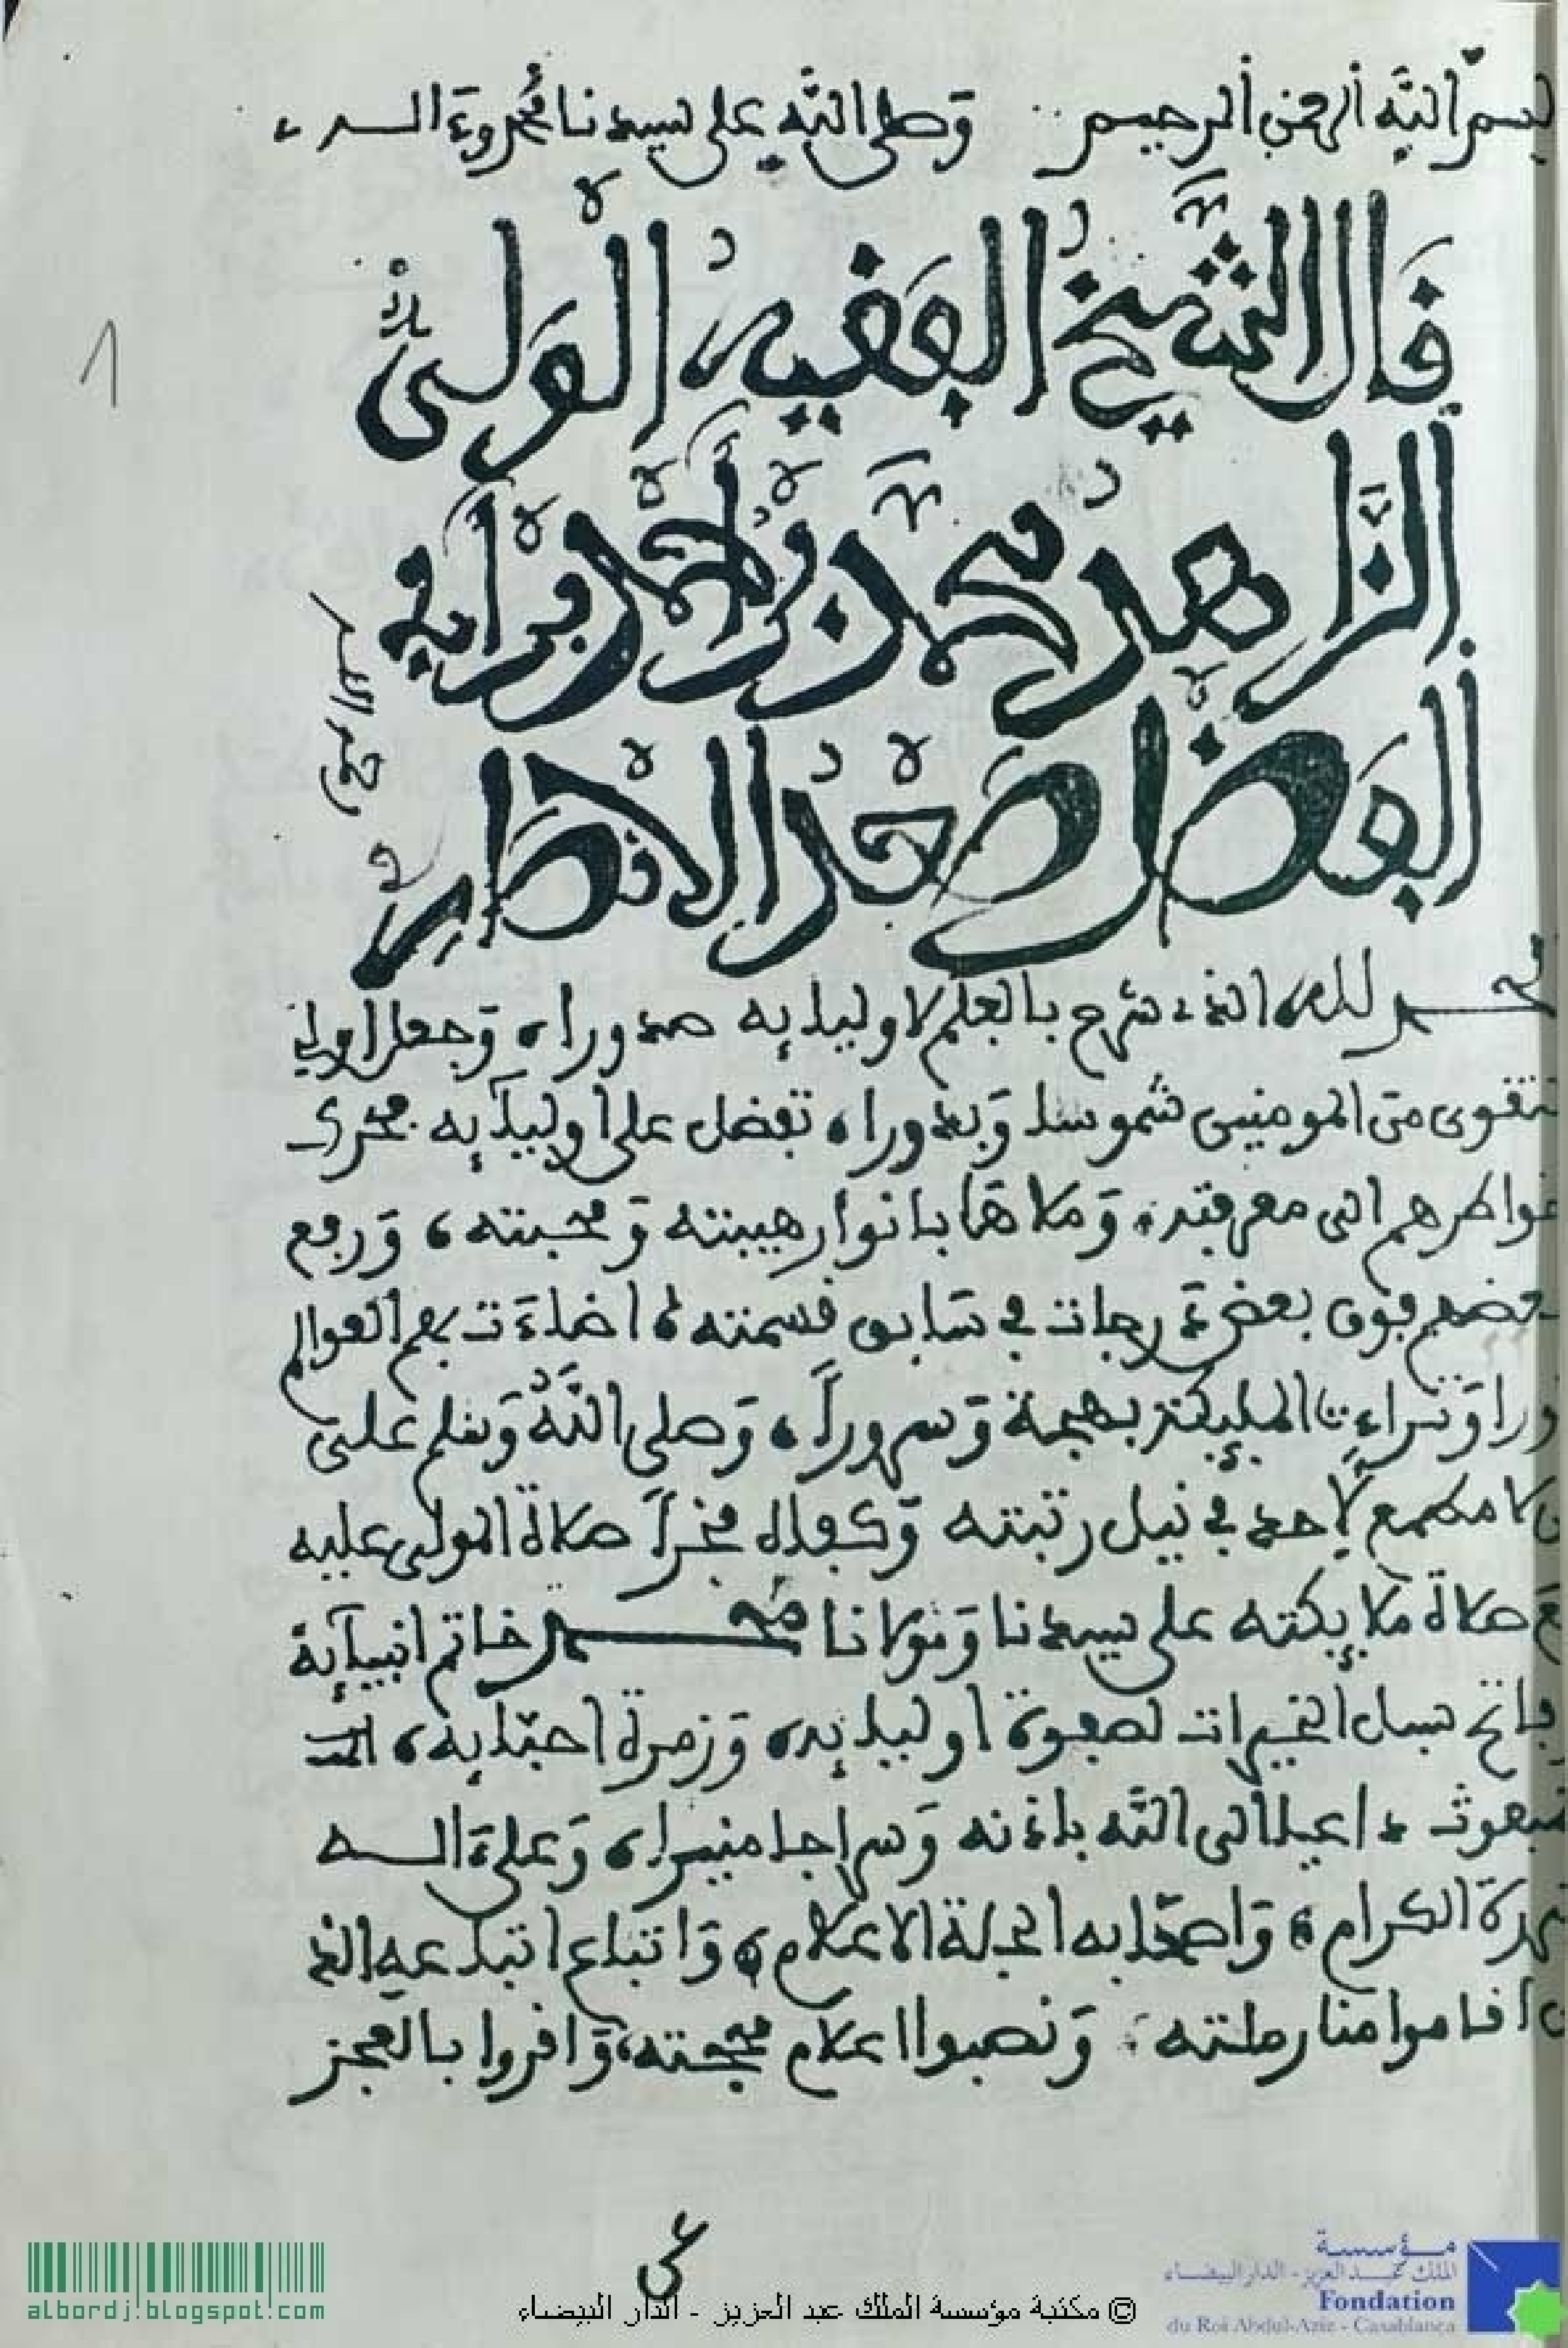 بسم الله الرحمن الرحيم وصلى الله على سيدنا محمد وءاله
قال الشيخ الفقيه الولي
الزاهد محمد بن احمد بن ابي
الفضل صعد الانصاري
رحمه الله
الحمد لله الذي شرح بالعلم لاوليايه صدورا، وجعل اولي
التقوى من المومنين شموسا وبدورا، تفضل على اوليآيه فحرك
خواطرهم الى معرفته، وملاها بانوار هيبته ومحبته، ورفع
بعضهم فوق بعض درجات في سابق قسمته، اضاءت بهم العوالم
نورا وتراءت المليكة بهجة وسرورا، وصلى الله وسلم على
من لا مطمع لاحد في نيل رتبته وكفاه فخرا صلاة المولى عليه
مع صلاة ملايكته على سيدنا ومولانا محمد خاتم انبيآيه
وفاتح سبل الخيرات لصفوة اوليايه، وزمرة احبايه،
المبعوث داعيا الى الله باذنه وسراجا منيرا، وعلى ءاله
البررة الكرام، واصحابه الجلة الاعلام، واتباع اتباعه الذ
ين اقاموا منار ملته، ونصبوا اعلام محجته، واقروا بالعجز
عن
1
albordj.blogspot.com
© مكتبة مؤسسة الملك عبد العزيز - الدار البيضاء
مؤسسة
الملك عبد العزيز - الدار البيضاء
Fondation
du Roi Abdul-Aziz - Casablanca